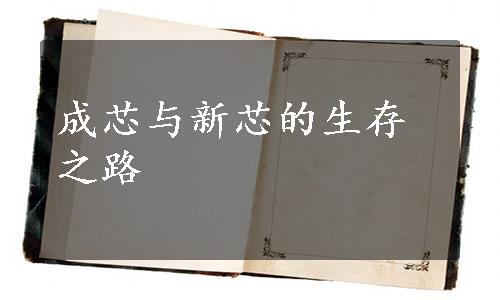 成芯与新芯的生存
之路